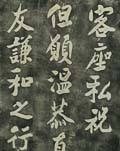 客座私祝
但願溫恭直
友謙和之行